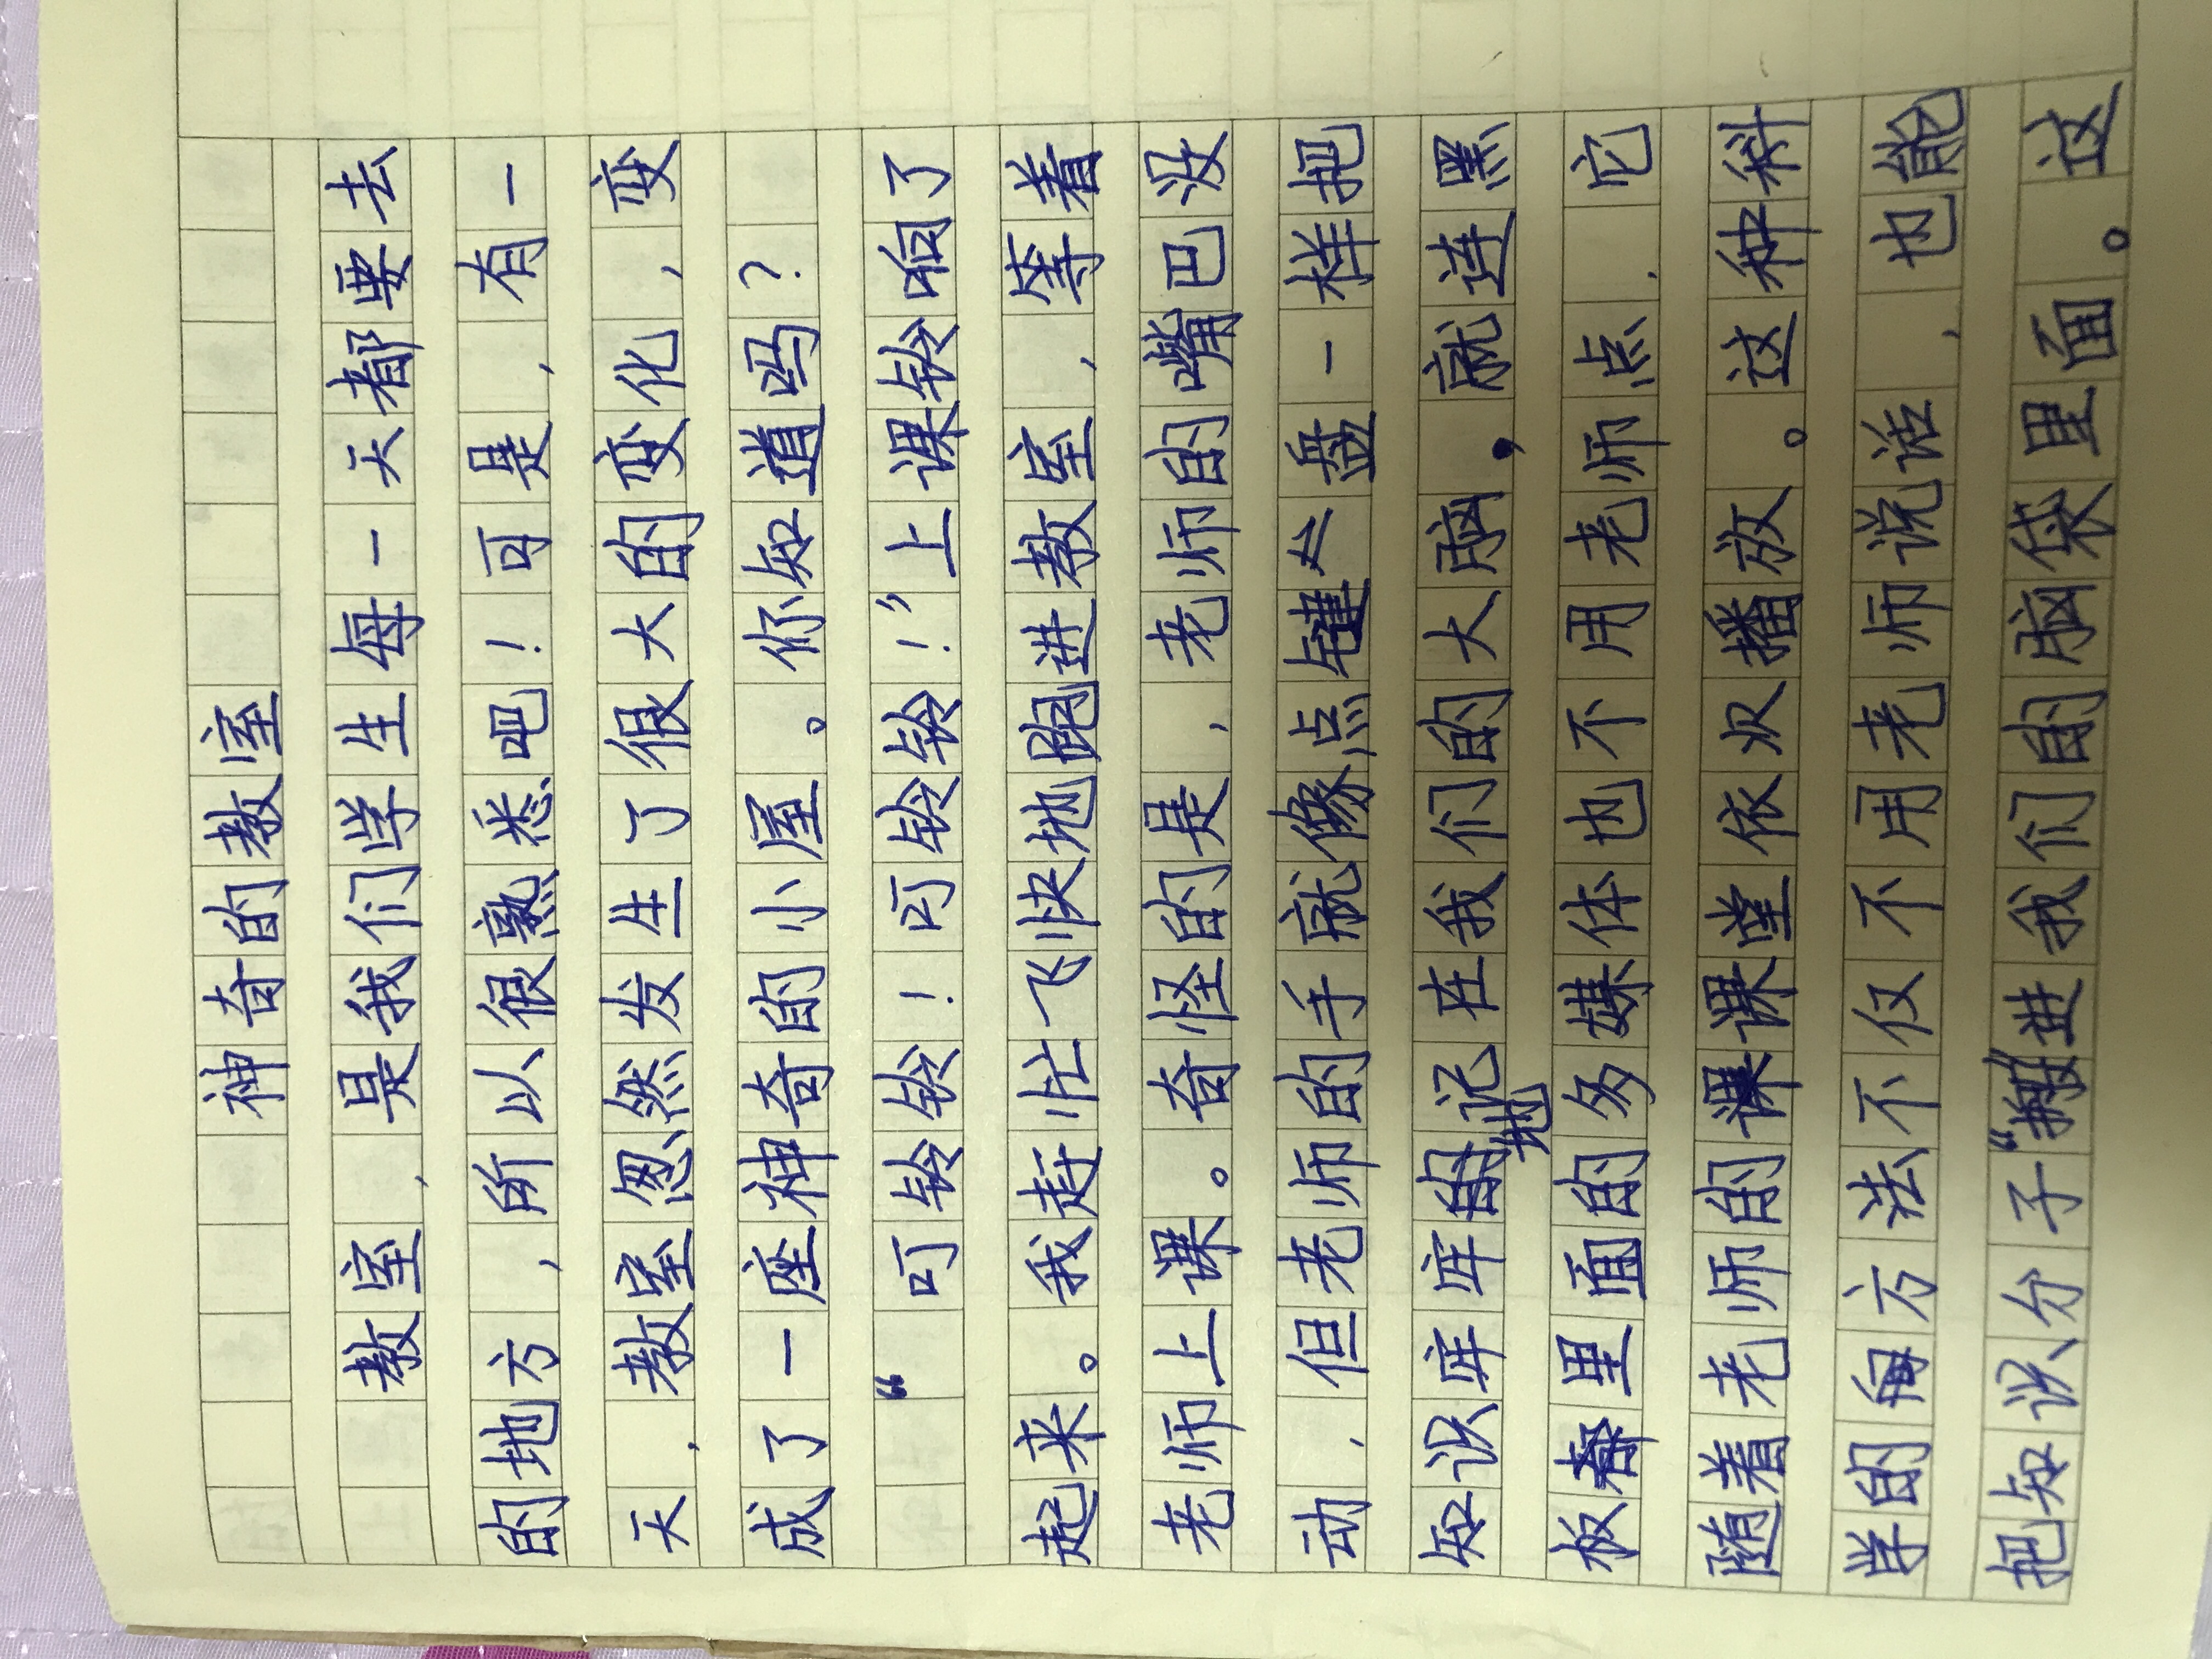 神奇的教室
教室，是我们学生每一天都要去
的地方，所以很熟悉吧！可是，有一
天，教室忽然发生了很大的变化，变
成了一座神奇的小屋。你知道吗？
“叮铃铃！叮铃铃！”上课铃响了
起来。我赶忙飞快地跑进教室，等着
老师上课。奇怪的是，老师的嘴巴没
动，但老师的手就像点键盘一样把
知识牢牢地记在我们的大脑，就连黑
板里面的多媒体也不用老师点，它
随着老师的课堂依次播放。这种科
学的方法不仅不用老师说话，也能
把知识分子“搬进我们的脑袋里面。这